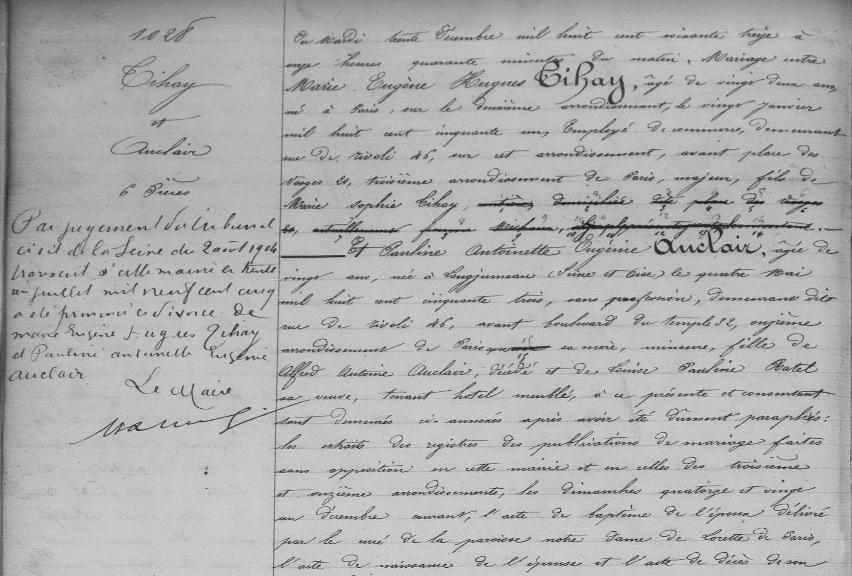 1028
Tihay
et
Auclair
6 Pièces
Par jugement du tribunal
civil de la Seine du 2 août 1904
transcrit à cette mairie le trente
un juillet mil neuf cent cinq
a été prononcé le divorce de
marie Eugène Hugues Tihay
et Pauline antoinette Eugénie
auclair
Le Maire
Du Mardi trente Décembre mil huit cent soixante treize à
onze heures quarante minutes du matin. Mariage entre
Marie Eugène Hugues Tihay, âgé de vingt deux ans,
né à Paris, sur le deuxième arrondissement, le vingt janvier
mil huit cent cinquante un, Employé de commerce, demeurant
rue de rivoli 46, sur cet arrondissement, avant place des
Vosges 20, troisième arrondissement de Paris, majeur, fils de
Marie Sophie Tihay, place des Vosges
20,
Et Pauline Antoinette Eugénie Auclair, âgée de
vingt ans, née à Longjumeau (Seine et Oise) le quatre Mai
mil huit cent cinquante trois, sans profession, demeurant dite
rue de rivoli 46, avant boulevard du temple 22, onzième
arrondissement de Paris sa mère, mineure, fille de
Alfred Antoine Auclair, décédé et de Louise Pauline Batel
sa veuve, tenant hotel meublé, à ce présente et consentant
sont demeurés ci-annexés après avoir été dument paraphés:
les extraits des registres des publications de mariage faites
sans opposition en cette mairie et en celles des troisième
et onzième arrondissements, les dimanches quatorze et vingt
un décembre courant, l'acte de baptême de l'époux délivré
par le curé de la paroisse notre Dame de Lorette de Paris,
l'acte de naissance de l'épouse et l'acte de décès de son